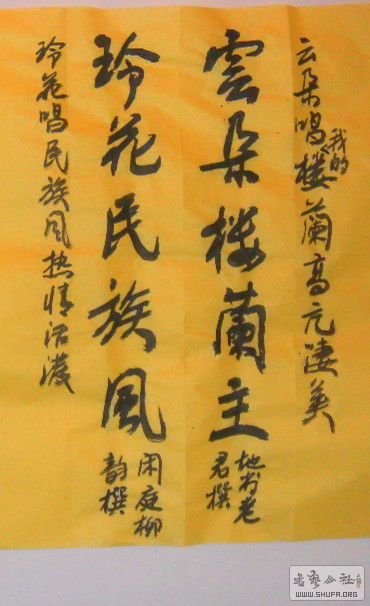 云朵唱我的楼兰高亢凄美
雲朵楼蘭主
地方老
君撰
玲花民族風
闲庭柳
韵撰
玲花唱民族风热情活泼
书艺公社
WWW.SHUFA.ORG